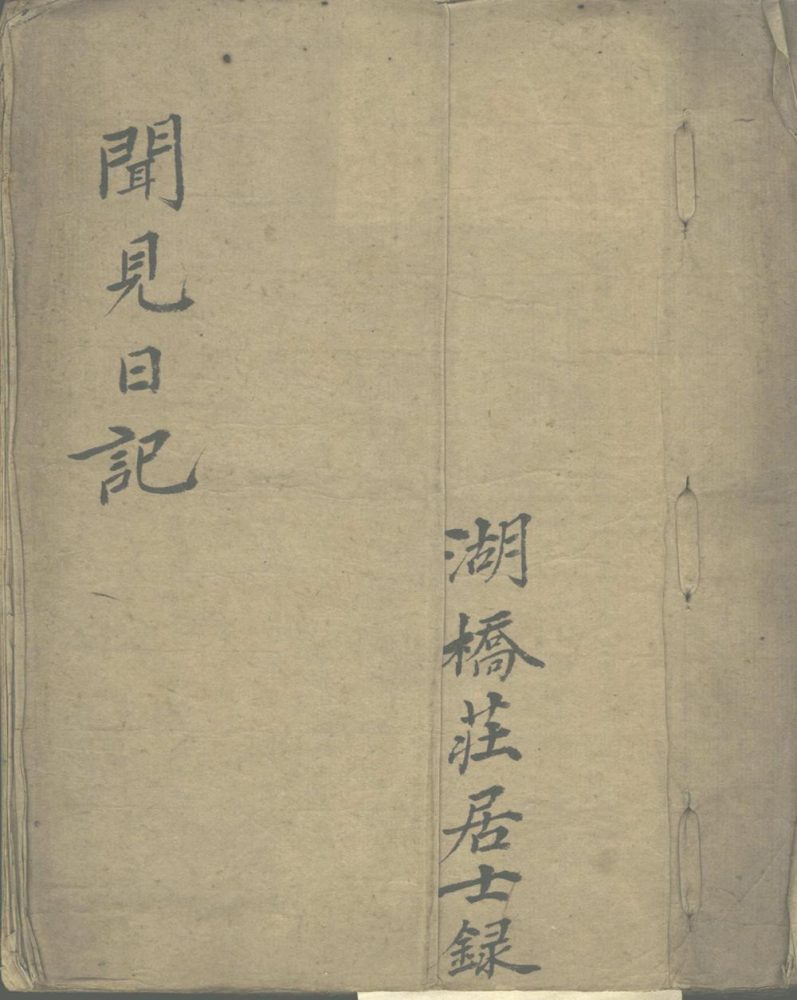 湖橋莊居士録
聞見日記